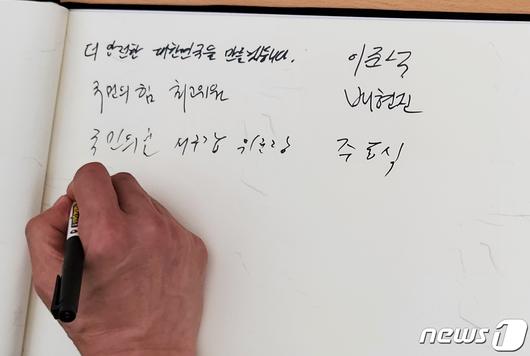 더 안전한 대한민국을 만들겠습니다. 이준석
국민의힘 최고위원 배현진
국민의힘 서구갑 위원장 주동식
news1